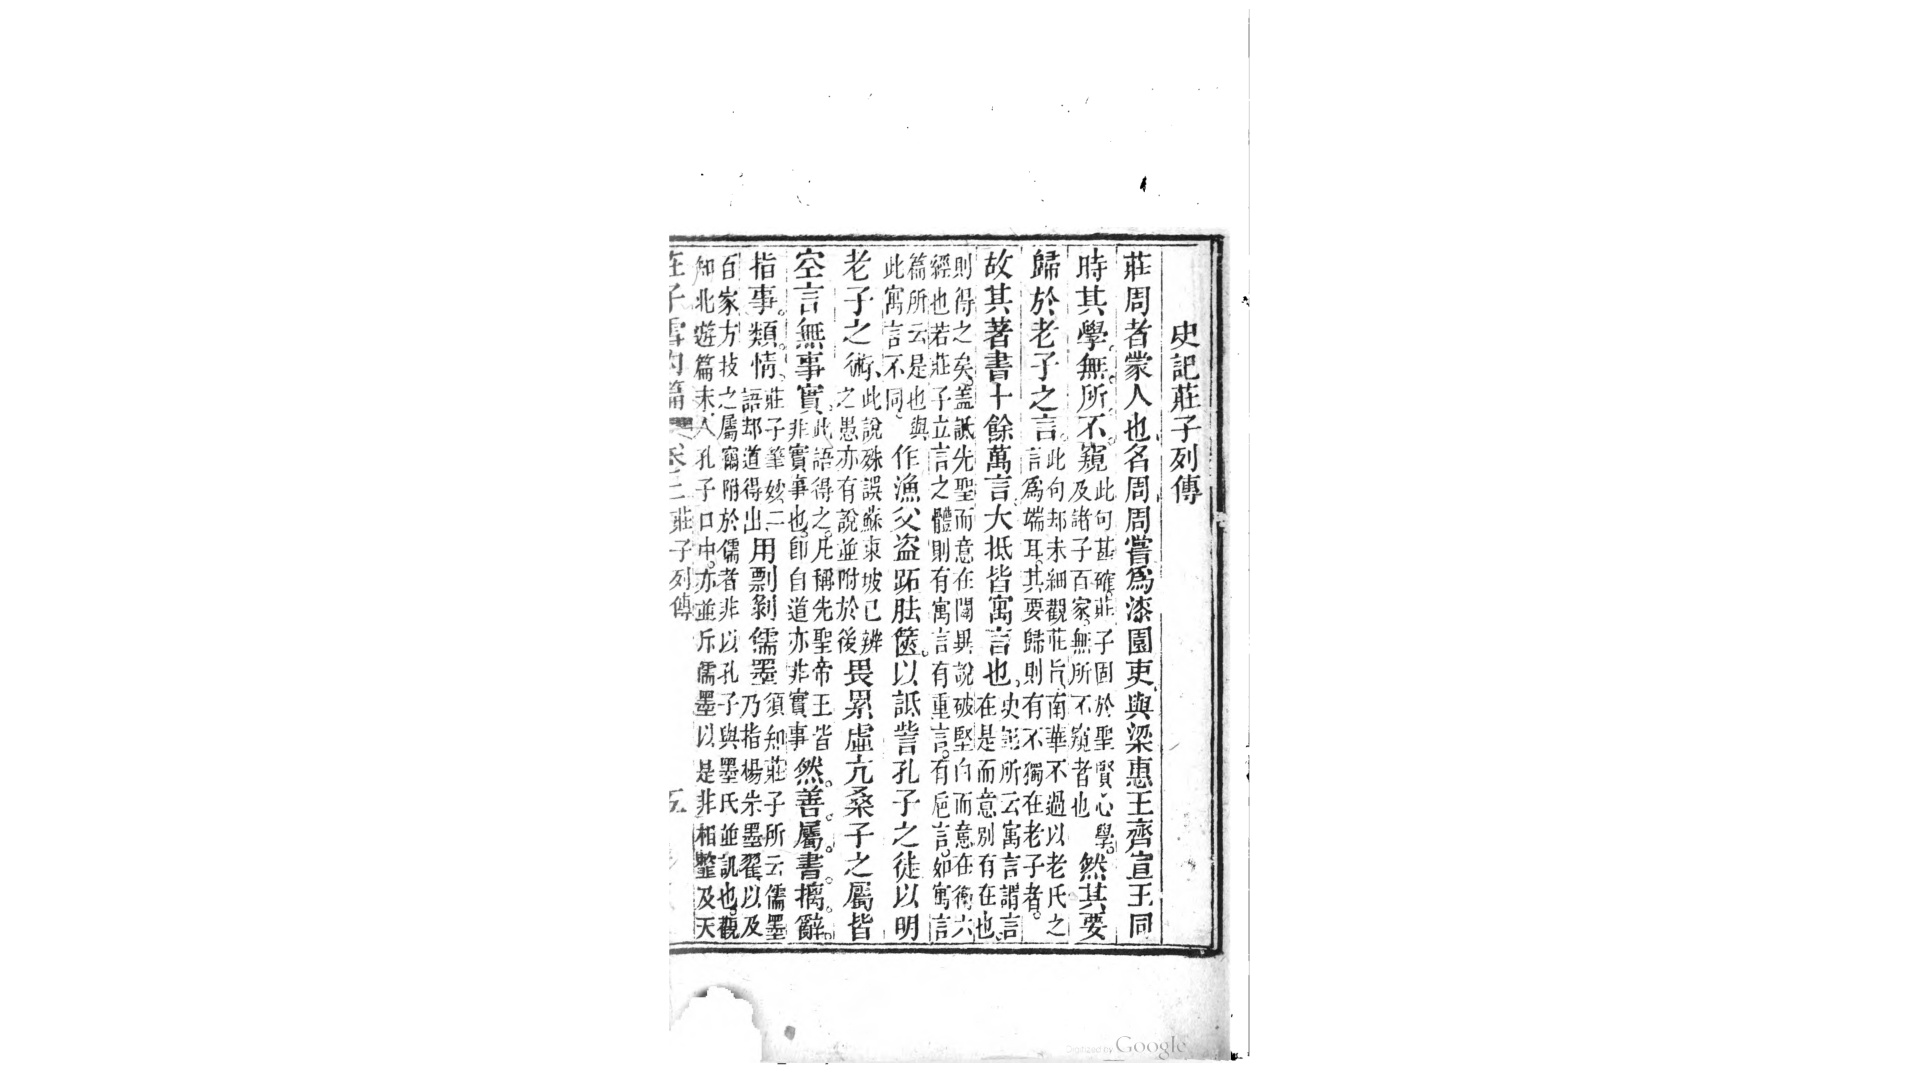 史記莊子列傳
莊周者蒙人也名周周嘗爲漆園吏與梁惠王齊宣王同
時其學無所不窺此句甚確莊子固於聖賢心學
及諸子百家無所不窺者也然其要
歸於老子之言此句却未細觀莊旨南華不過以老氏之
言爲端耳其要歸則有不獨在老子者
故其著書十餘萬言大抵皆寓言也史記所云寓言謂言
在是而意別有在也
則得之矣蓋詆先聖而意在闢異說破堅白而意在衛六
經也若莊子立言之體則有寓言有重言有巵言如寓言
篇所云是也與
此寓言不同作漁父盜跖胠篋以詆訾孔子之徒以明
老子之術此說殊誤蘇東坡已辨
之愚亦有說並附於後畏累虛亢桑子之屬皆
空言無事實此語得之凡稱先聖帝王皆
非實事也卽自道亦非實事然善屬書摛辭
指事類情莊子筆妙二
語却道得出用剽剝儒墨須知莊子所云儒墨
乃指楊朱墨翟以及
百家方技之屬竊附於儒者非以孔子與墨氏並訊也觀
知北遊篇末入孔子口中亦並斥儒墨以是非相𩐋及天
莊子列傳
五
Digitized by Google